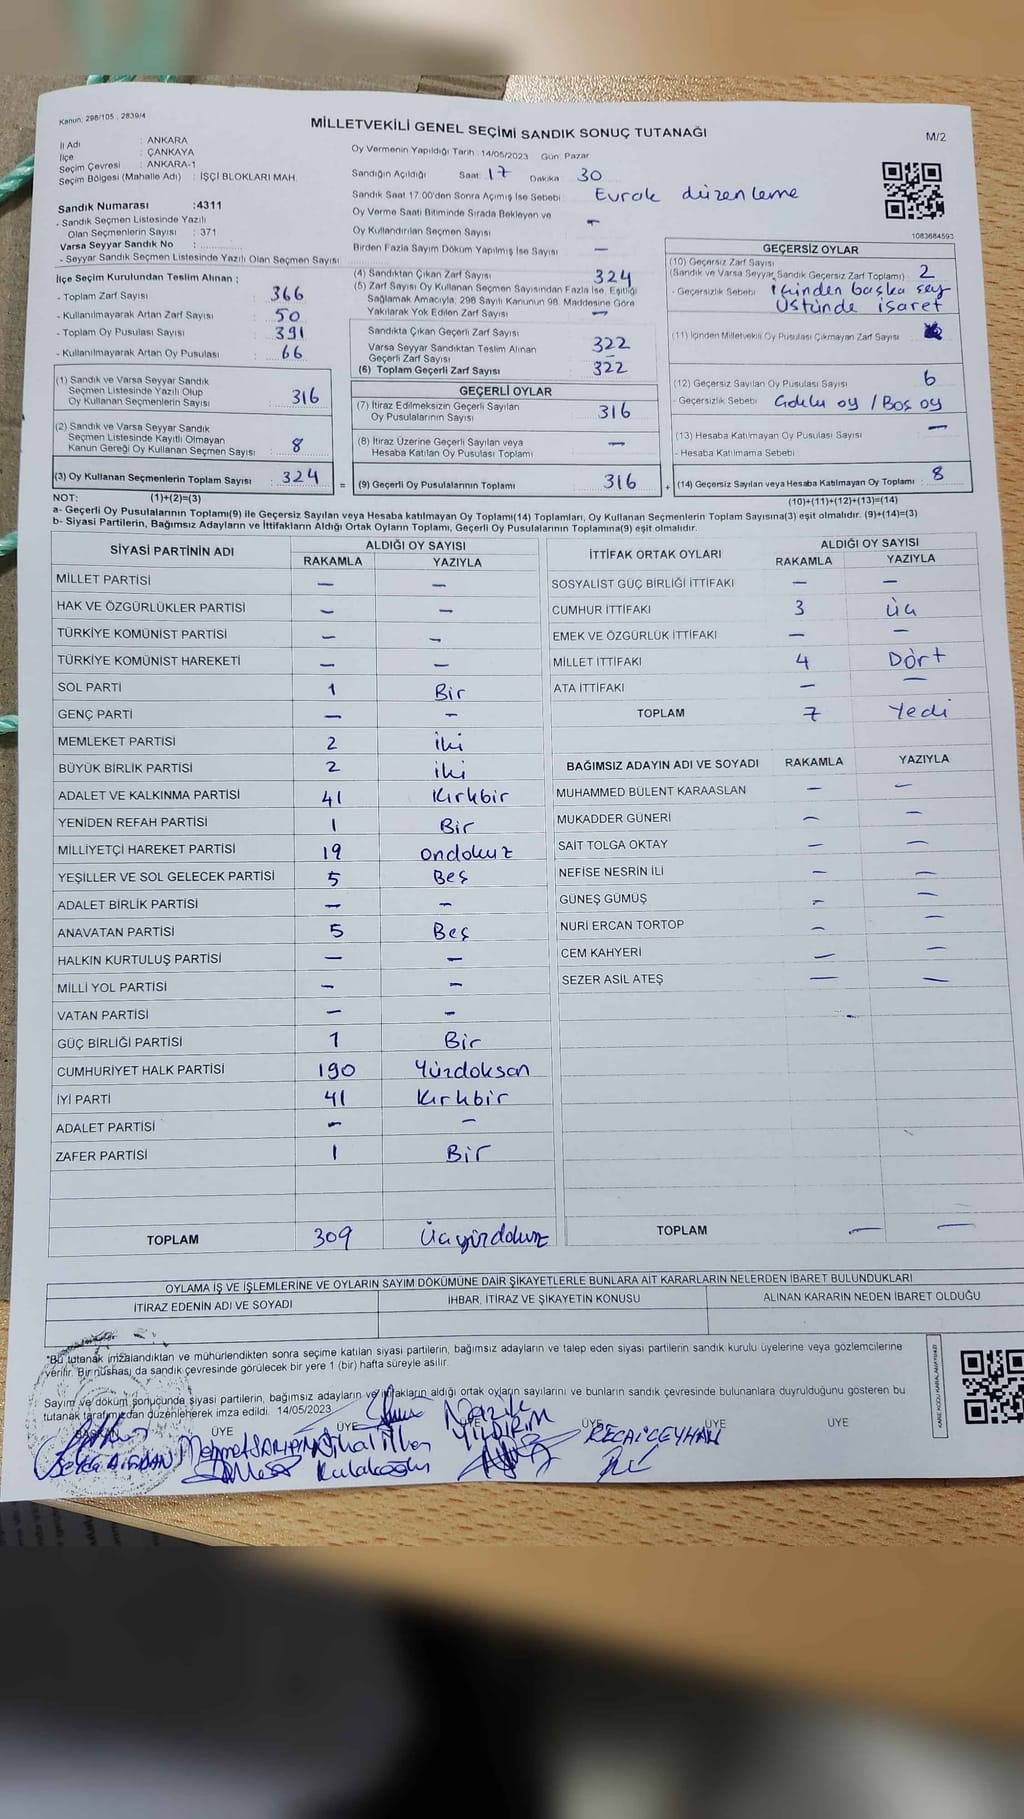 Kanun: 298/105 , 2839/4
MİLLETVEKİLİ GENEL SEÇİMİ SANDIK SONUÇ TUTANAĞI
M/2
İl Adı : ANKARA
İlçe : ÇANKAYA
Seçim Çevresi : ANKARA-1
Seçim Bölgesi (Mahalle Adı) : İŞÇİ BLOKLARI MAH.
Sandık Numarası :4311
- Sandık Seçmen Listesinde Yazılı
Olan Seçmenlerin Sayısı : 371
Varsa Seyyar Sandık No :
- Seyyar Sandık Seçmen Listesinde Yazılı Olan Seçmen Sayısı:
Oy Vermenin Yapıldığı Tarih :14/05/2023 Gün: Pazar
Sandığın Açıldığı Saat: 17 Dakika 30
Sandık Saat 17:00'den Sonra Açılmış İse Sebebi : Evrak düzenleme
Oy Verme Saati Bitiminde Sırada Bekleyen ve
Oy Kullandırılan Seçmen Sayısı –
Birden Fazla Sayım Döküm Yapılmış İse Sayısı –
1083684593
İlçe Seçim Kurulundan Teslim Alınan ;
- Toplam Zarf Sayısı : 366
- Kullanılmayarak Artan Zarf Sayısı : 50
- Toplam Oy Pusulası Sayısı : 391
- Kullanılmayarak Artan Oy Pusulası : 66
(1) Sandık ve Varsa Seyyar Sandık
Seçmen Listesinde Yazılı Olup
Oy Kullanan Seçmenlerin Sayısı : 316
(2) Sandık ve Varsa Seyyar Sandık
Seçmen Listesinde Kayıtlı Olmayan
Kanun Gereği Oy Kullanan Seçmen Sayısı : 8
(3) Oy Kullanan Seçmenlerin Toplam Sayısı : 324
(4) Sandıktan Çıkan Zarf Sayısı 324
(5) Zarf Sayısı Oy Kullanan Seçmen Sayısından Fazla İse, Eşitliği
Sağlamak Amacıyla, 298 Sayılı Kanunun 98. Maddesine Göre
Yakılarak Yok Edilen Zarf Sayısı –
Sandıkta Çıkan Geçerli Zarf Sayısı : 322
Varsa Seyyar Sandıktan Teslim Alınan
Geçerli Zarf Sayısı –
(6) Toplam Geçerli Zarf Sayısı : 322
GEÇERLİ OYLAR
(7) İtiraz Edilmeksizin Geçerli Sayılan
Oy Pusulalarının Sayısı : 316
(8) İtiraz Üzerine Geçerli Sayılan veya
Hesaba Katılan Oy Pusulası Toplamı –
= (9) Geçerli Oy Pusulalarının Toplamı : 316
GEÇERSİZ OYLAR
(10) Geçersiz Zarf Sayısı
(Sandık ve Varsa Seyyar Sandık Geçersiz Zarf Toplamı) : 2
- Geçersizlik Sebebi : İçinden başka şey
Üstünde işaret
(11) İçinden Milletvekili Oy Pusulası Çıkmayan Zarf Sayısı
(12) Geçersiz Sayılan Oy Pusulası Sayısı : 6
- Geçersizlik Sebebi : Çoklu oy / Boş oy
(13) Hesaba Katılmayan Oy Pusulası Sayısı –
- Hesaba Katılmama Sebebi
+ (14) Geçersiz Sayılan veya Hesaba Katılmayan Oy Toplamı : 8
NOT: (1)+(2)=(3) (10)+(11)+(12)+(13)=(14)
a- Geçerli Oy Pusulalarının Toplamı(9) ile Geçersiz Sayılan veya Hesaba katılmayan Oy Toplamı(14) Toplamları, Oy Kullanan Seçmenlerin Toplam Sayısına(3) eşit olmalıdır. (9)+(14)=(3)
b- Siyasi Partilerin, Bağımsız Adayların ve İttifakların Aldığı Ortak Oyların Toplamı, Geçerli Oy Pusulalarının Toplamına(9) eşit olmalıdır.
SİYASİ PARTİNİN ADI ALDIĞI OY SAYISI
RAKAMLA YAZIYLA
MİLLET PARTİSİ – –
HAK VE ÖZGÜRLÜKLER PARTİSİ – –
TÜRKİYE KOMÜNİST PARTİSİ – –
TÜRKİYE KOMÜNİST HAREKETİ – –
SOL PARTİ 1 Bir
GENÇ PARTİ – –
MEMLEKET PARTİSİ 2 iki
BÜYÜK BİRLİK PARTİSİ 2 iki
ADALET VE KALKINMA PARTİSİ 41 Kırkbir
YENİDEN REFAH PARTİSİ 1 Bir
MİLLİYETÇİ HAREKET PARTİSİ 19 ondokuz
YEŞİLLER VE SOL GELECEK PARTİSİ 5 Beş
ADALET BİRLİK PARTİSİ – –
ANAVATAN PARTİSİ 5 Beş
HALKIN KURTULUŞ PARTİSİ – –
MİLLİ YOL PARTİSİ – –
VATAN PARTİSİ – –
GÜÇ BİRLİĞİ PARTİSİ 1 Bir
CUMHURİYET HALK PARTİSİ 190 Yüzdoksan
İYİ PARTİ 41 Kırkbir
ADALET PARTİSİ – –
ZAFER PARTİSİ 1 Bir
TOPLAM 309 Üçyüzdokuz
İTTİFAK ORTAK OYLARI ALDIĞI OY SAYISI
RAKAMLA YAZIYLA
SOSYALİST GÜÇ BİRLİĞİ İTTİFAKI – –
CUMHUR İTTİFAKI 3 Üç
EMEK VE ÖZGÜRLÜK İTTİFAKI – –
MİLLET İTTİFAKI 4 Dört
ATA İTTİFAKI – –
TOPLAM 7 Yedi
BAĞIMSIZ ADAYIN ADI VE SOYADI RAKAMLA YAZIYLA
MUHAMMED BÜLENT KARAASLAN – –
MUKADDER GÜNERİ – –
SAİT TOLGA OKTAY – –
NEFİSE NESRİN İLİ – –
GÜNEŞ GÜMÜŞ – –
NURİ ERCAN TORTOP – –
CEM KAHYERİ – –
SEZER ASİL ATEŞ – –
TOPLAM – –
OYLAMA İŞ VE İŞLEMLERİNE VE OYLARIN SAYIM DÖKÜMÜNE DAİR ŞİKAYETLERLE BUNLARA AİT KARARLARIN NELERDEN İBARET BULUNDUKLARI
İTİRAZ EDENİN ADI VE SOYADI İHBAR, İTİRAZ VE ŞİKAYETİN KONUSU ALINAN KARARIN NEDEN İBARET OLDUĞU
*Bu tutanak imzalandıktan ve mühürlendikten sonra seçime katılan siyasi partilerin, bağımsız adayların ve talep eden siyasi partilerin sandık kurulu üyelerine veya gözlemcilerine
verilir. Bir nüshası da sandık çevresinde görülecek bir yere 1 (bir) hafta süreyle asılır.
Sayım ve döküm sonucunda siyasi partilerin, bağımsız adayların ve ittifakların aldığı ortak oyların sayılarını ve bunların sandık çevresinde bulunanlara duyrulduğunu gösteren bu
tutanak tarafımızdan düzenlenerek imza edildi. 14/05/2023
BAŞKAN ÜYE ÜYE ÜYE ÜYE ÜYE ÜYE
Nazik
YILDIRIM
RECAİ CEYHAN